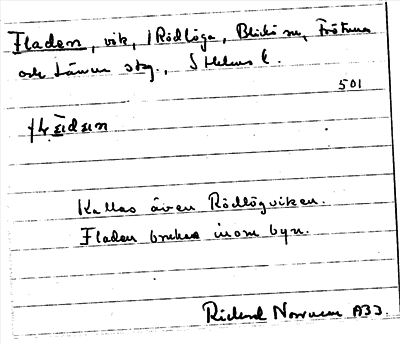 Fladen, vik, i Rödlöga, Blidö sn, Frötuna
och Länna skg., Sthlms l.
501
Kallas även Rödlögviken.
Fladen brukas inom byn.
Rickard Norrman A33.